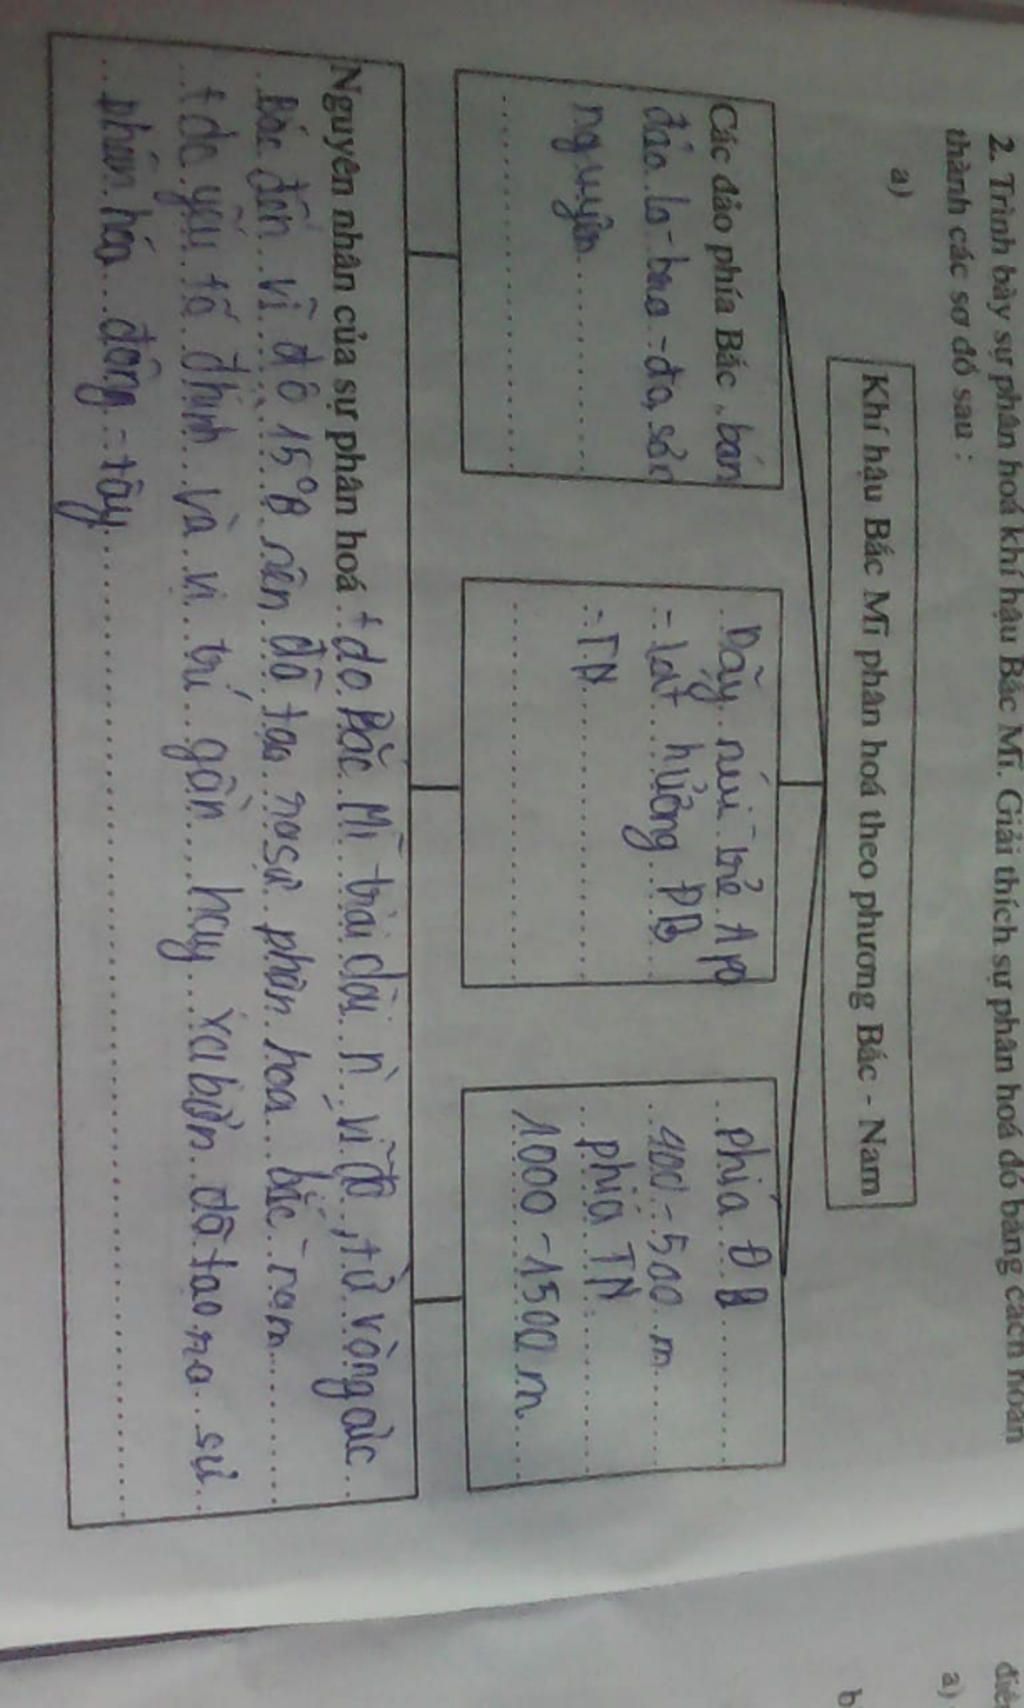 2. Trình bày sự phân hoá khí hậu Bắc Mĩ. Giải thích sự phân hoá đó bằng cách hoàn
thành các sơ đồ sau :
a)
Khí hậu Bắc Mĩ phân hoá theo phương Bắc - Nam
Các đảo phía Bắc, bán
đảo la-bra-đo, sơn
nguyên
Dãy núi trẻ Apa
-lat hướng ĐB
-TN
phía ĐB
400-500 m
phía TN
1000-1500m
Nguyên nhân của sự phân hoá + do Bắc Mĩ trải dài vĩ độ, từ vòng cực
Bắc đến vĩ độ 15°B nên đã tạo ra sự phân hoa bắc - nam
+ do yếu tố địa hình và vị trí gần hay xa biển đã tạo ra sự
phân hóa đông - tây
a)
b